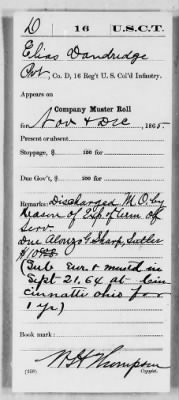 D 16 U.S.C.T.
Elias Dandridge
Pvt, Co. D, 16 Reg't U. S. Col'd Infantry.
Appears on
Company Muster Roll
for Nov & Dec, 1865.
Present or absent
Stoppage, $ 100 for
Due Gov't, $ 100 for
Remarks: Discharged M.O. by
reason of Exp of term of
Serv.
Due Alonzo G Sharp, Sutler
(Sub Enr & must'd in
Sept 21, 64 at Cin
cinnatti Ohio for
1 yr)
Book mark:
Thompson
(358) Copyist.